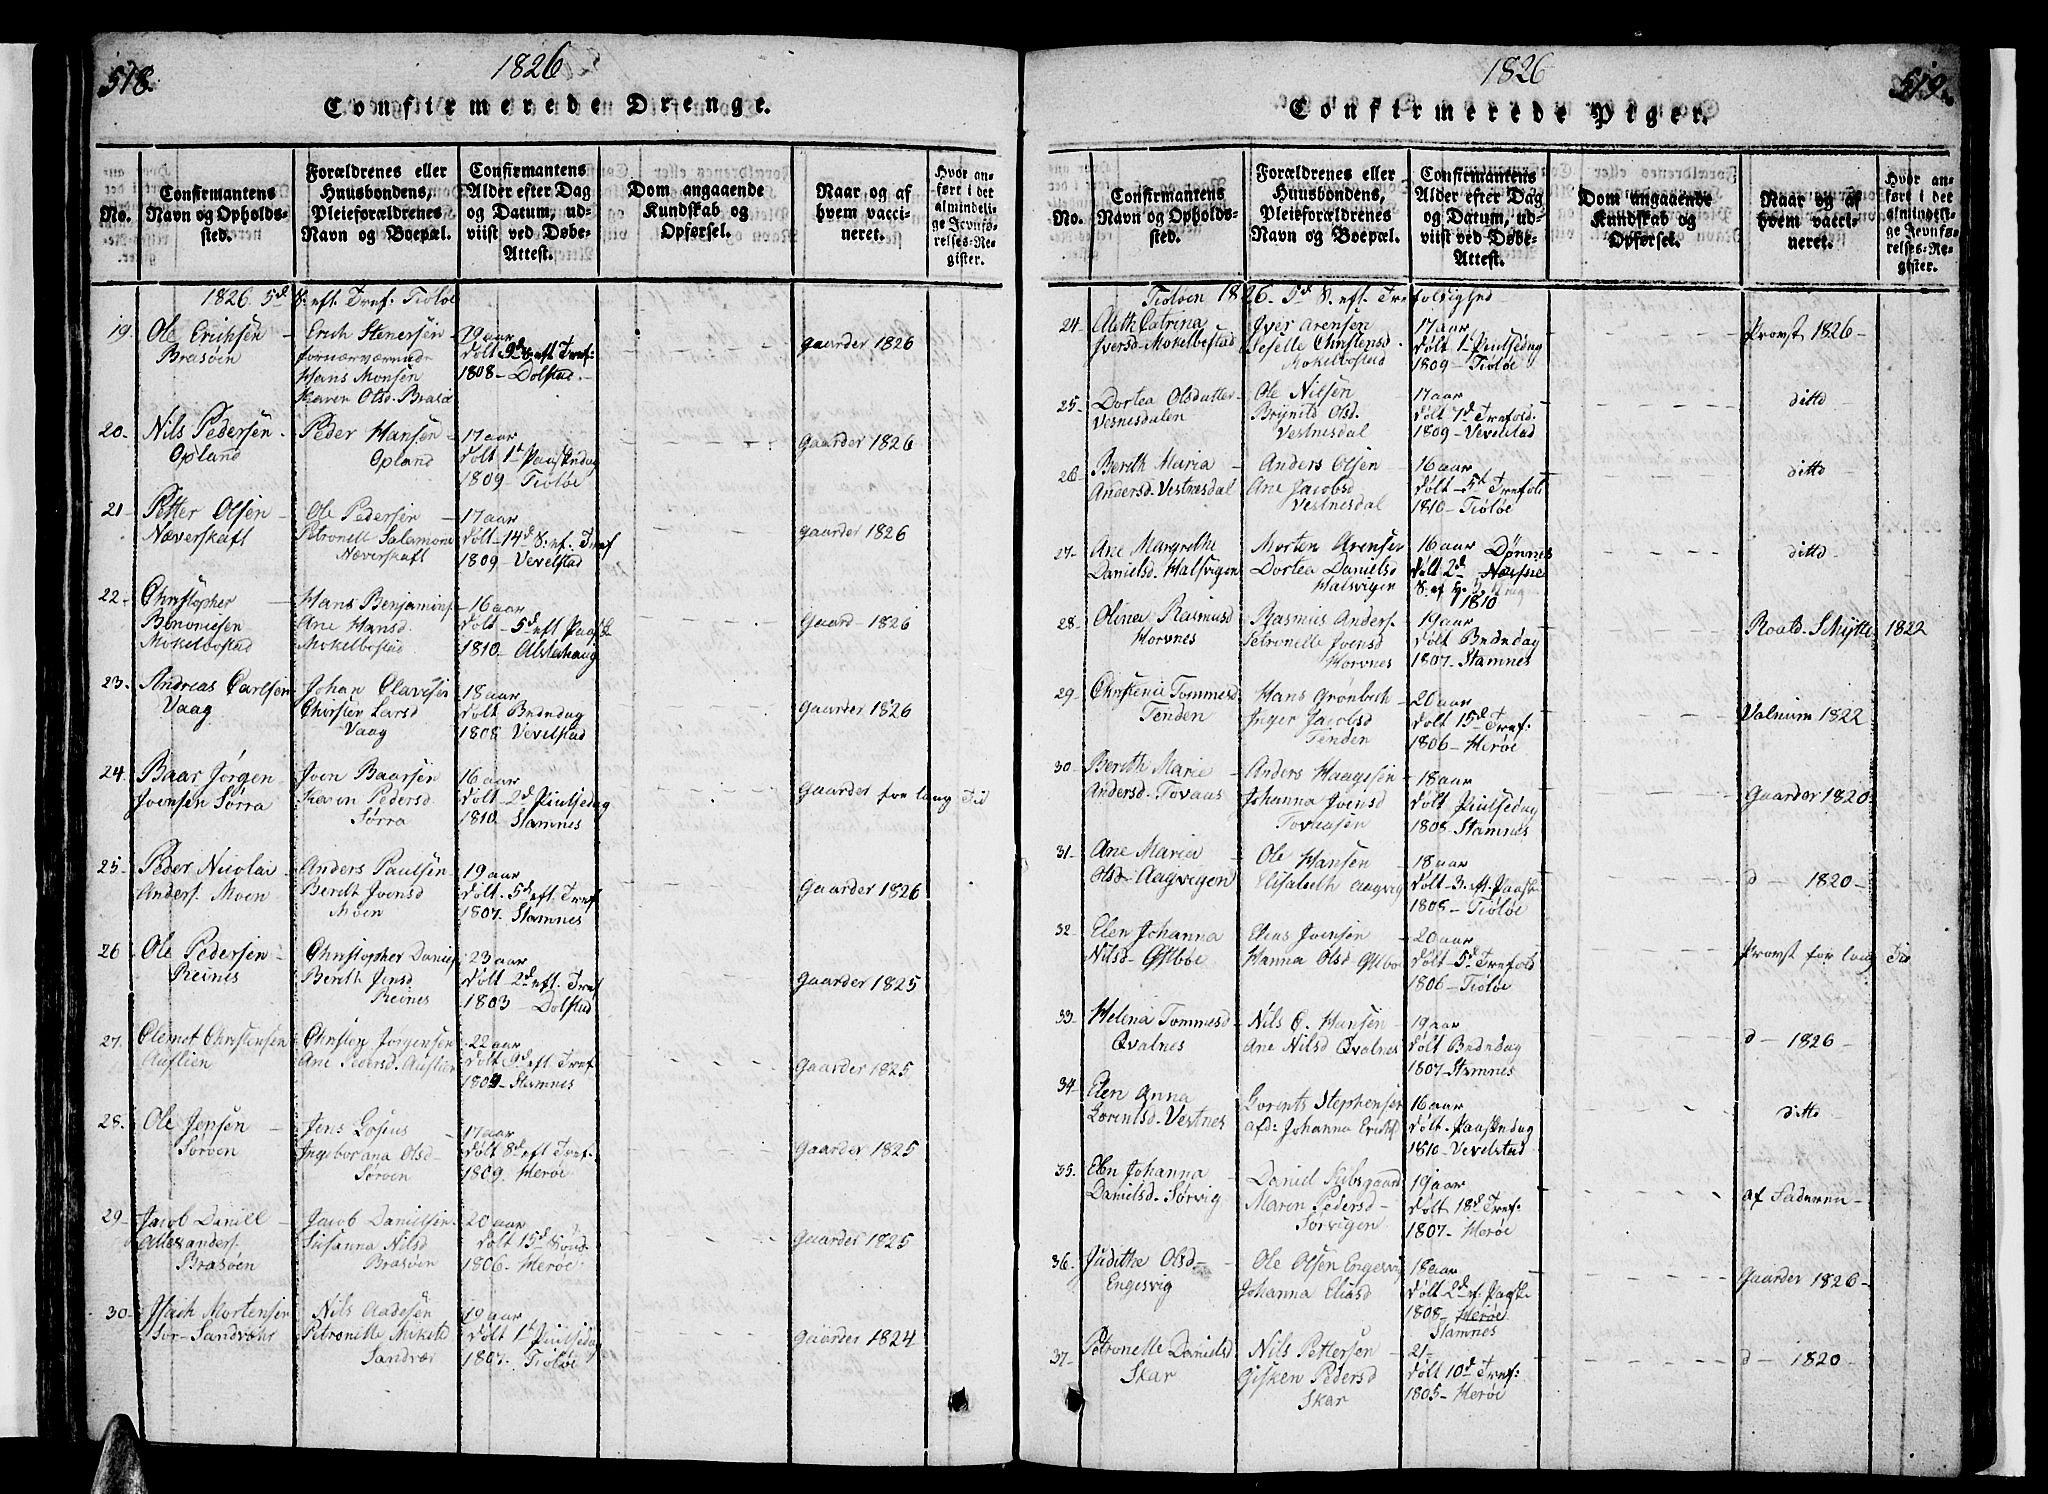 518.
1826
Confirmerede Drenge.
No.
Confirmantens Navn og Opholdssted.
Forældrenes eller Huusbondens, Pleieforældrenes Navn og Boepæl.
Confirmantens Alder efter Dag og Datum, udviist ved Døbe-Attest.
Dom angaaende Kundskab og Opførsel.
Naar og af hvem vaccineret.
Hvor anført i det almindelige Jevnførelses-Register.
1826. 5d S. eft. Tref. Tiøtøe
19. Ole Erichsen Brasøen
Erich Stenersen
Hans Monsen
Karen Olsd. Brasøe
19 aar
døbt 9d S. eft Tref:
1808 - Dolstad.
Gaarder 1826
20. Nils Pedersen Opland
Peder Hansen Opland
17 aar
døbt 1d Paaskedag
1809 - Tiøtøe
Gaarder 1826
21. Petter Olsen Næverskaft
Ole Pedersen
Petronell Salamons
Næverskaft
17 aar
døbt 14d S. ef. Tref
1809 - Vevelstad
Gaarder 1826
22. Christopher Benonisen Mokelbostad
Hans Benjamins
Ane Hansd.
Mokelbostad
16 aar
døbt - 5d eft Paaske
1810 - Alstahaug
Gaard - 1826
23. Andreas Carlsen Vaag
Johan Clausen
Chirsten Larsd
Vaag
18 aar
døbt Bededag
1808 Vevelstad
Gaarder 1826
24. Baar Jørgen Joensen Sørra
Joen Baarsen
Karen Pedersd.
Sørra
16 aar
døbt - 2d Pintsedag
1810 - Stamnes
Gaarder for lang Tid
25. Peder Nicolai Anders. Moen
Anders Paulsen
Bereth Joensd
Moen
19 aar
døbt. 5d eft Tref
1807. Stamnes
Gaarder 1826
26 Ole Pedersen Reines
Christopher Daniels
Bereth Jensd
Reines
23 aar
døbt - 2d eft. Tref
1803 - Dolstad
Gaarder 1825
27. Clemet Christensen Austlien
Christen Jørgensen
Ane Pedersd. Austlien
22 aar
døbt 9d eft Tref
1804 - Stamnes
Gaarder 1825
28. Ole Jensen Sørven
Jens Gosius
Ingeborana Olsd
Sørven
17 aar
døbt 8d eft Tref.
1809. Herøe
Gaarder 1825
29 - Jacob Daniell Allexanders. Brasøen
Jacob Danielsen.
Susanna Nilsd
Brasøen
20 aar
døbt 15d Sønd.
1806. Herøe
Gaarder 1825
30. Isach Mortensen Sør-Sandvær
Nils Aadesen
Petronelle Mikelsd
Sandvær
19 aar
døbt 1d Pintsedag
1807. Tiøtøe
Gaarder 1824
519.
1826
Confirmerede Piger.
No.
Confirmantens Navn og Opholdssted.
Forældrenes eller Huusbondens, Pleieforældrenes Navn og Boepæl.
Confirmantens Alder efter Dag og Datum, udviist ved Døbe-Attest.
Dom angaaende Kundskab og Opførsel.
Naar og af hvem vaccineret.
Hvor anført i det almindelige Jevnførelses-Register.
Tiøtøen 1826 - 5d S. eft. Trefoldighed
24. Aleth Catrina Iversd - Mokelbostad
Iver Arensen
Seselle Christensd.
Mokelbostad
17 aar
døbt - 1d Pintsedag
1809 - Tiøtøe
Provst 1826 -
25. Dortea Olsdatter Vesnesdalen
Ole Nilsen
Brynild Olsd.
Vestnesdal
17 aar
døbt 7d Trefold.
1809 - Vevelstad
ditto
26. Bereth Maria Andersd. Vestnesdal
Anders Olsen
Ane Jacobsd
Vestnesdal
16 aar
døbt - 5d Trefold
1810 - Tiøtøe
ditto
27. Ane Margrethe Danielsd. Halsvigen
Morten Arensen
Dortea Danielsd
Halsvigen
16 aar Dønnes
døbt 2d
1810
ditto
28 - Olina Rasmusd Horvnes
Rasmus Anders.
Petronelle Joensd
Horvnes
19 aar
døbt Bededag
1807 - Stamnes
Roald - Schytte 1822
29. Christenia Tommesd Tenden
Hans Grønbech
Inger Jacobsd
Tenden
20 aar
døbt 15d Tref.
1806 - Herøe
Valnum 1822
30. Bereth Marie Andersd. Tovaas
Anders Haagesen
Johanna Joensd
Tovaasen
18 aar
døbt Pintsedag
1808 - Stamnes
Gaarder 1820
31. Ane Maria Olsd. Aagvigen
Ole Hansen
Elisabeth Aagvig
18 aar
døbt - 3. eft. Paask
1808 - Tiøtøe
d - 1820 -
32. Elen Johanna Nilsd - Østbøe
Elias Joensen
Hanna Olsd Østbø
20 aar
døbt - 5d Trefold
1806 - Tiøtøe
Provst for lang Tid
33. Helena Tommesd Qvalnes
Nils C. Hansen
Ane Nilsd Qvalnes
19 aar
døbt Bededag
1807 - Stamnes
d - 1826 -
34. Elen Anna Lorentsd. Vestnes
Lorents Stephensen
afd: Johanna Erichs
16 aar
døbt. Paaskedag
1810 - Vevelstad
ditto
35. Elen Johanna Danielsd - Sørvig
Daniel
Maren Pedersd
Sørvigen
19 aar
døbt 18d Tref.
1807. Herøe
af Faderen -
36. Judithe Olsd - Engesvig
Ole Olsen Engesvig
Johanna Eliasd
18 aar
døbt 2d ef. Paask.
1808 - Herøe
Stamnes
Gaarder 1826 -
37. Petronelle Danielsd Skar
Nils Pettersen
Gisken Pedersd
Skar
21 -
døbt 10d Tref:
1805 - Herøe
d - 1820 -